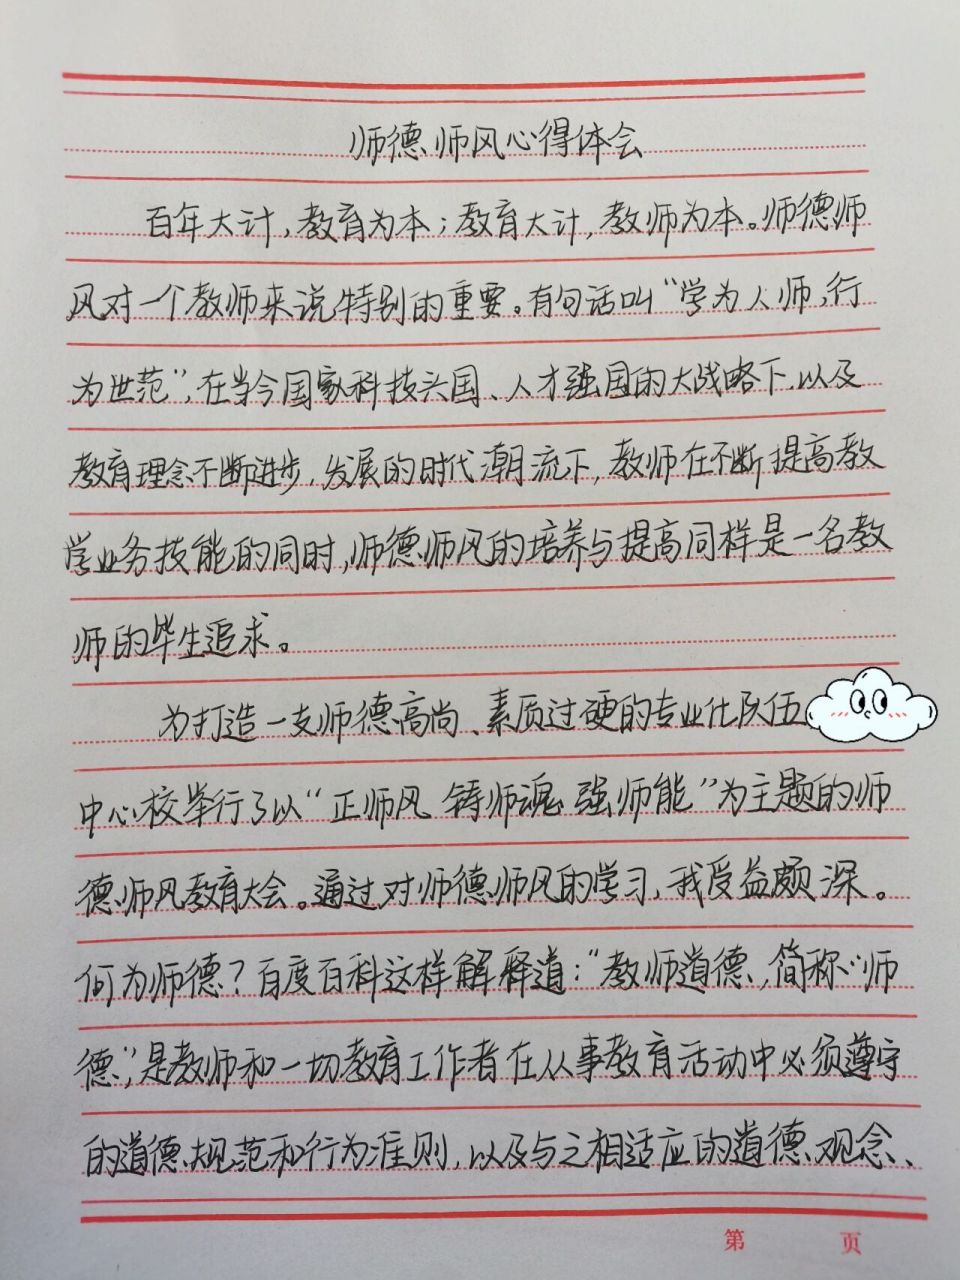 师德师风心得体会
百年大计，教育为本；教育大计，教师为本。师德师
风对一个教师来说特别的重要。有句话叫“学为人师，行
为世范”，在当今国家科技兴国、人才强国的大战略下，以及
教育理念不断进步，发展的时代潮流下，教师在不断提高教
学业务技能的同时，师德师风的培养与提高同样是一名教
师的毕生追求。
为打造一支师德高尚、素质过硬的专业化队伍
中心校举行了以“正师风 铸师魂 强师能”为主题的师
德师风教育大会。通过对师德师风的学习，我受益颇深。
何为师德？百度百科这样解释道：“教师道德，简称“师
德”，是教师和一切教育工作者在从事教育活动中必须遵守
的道德规范和行为准则，以及与之相适应的道德观念、
第 页